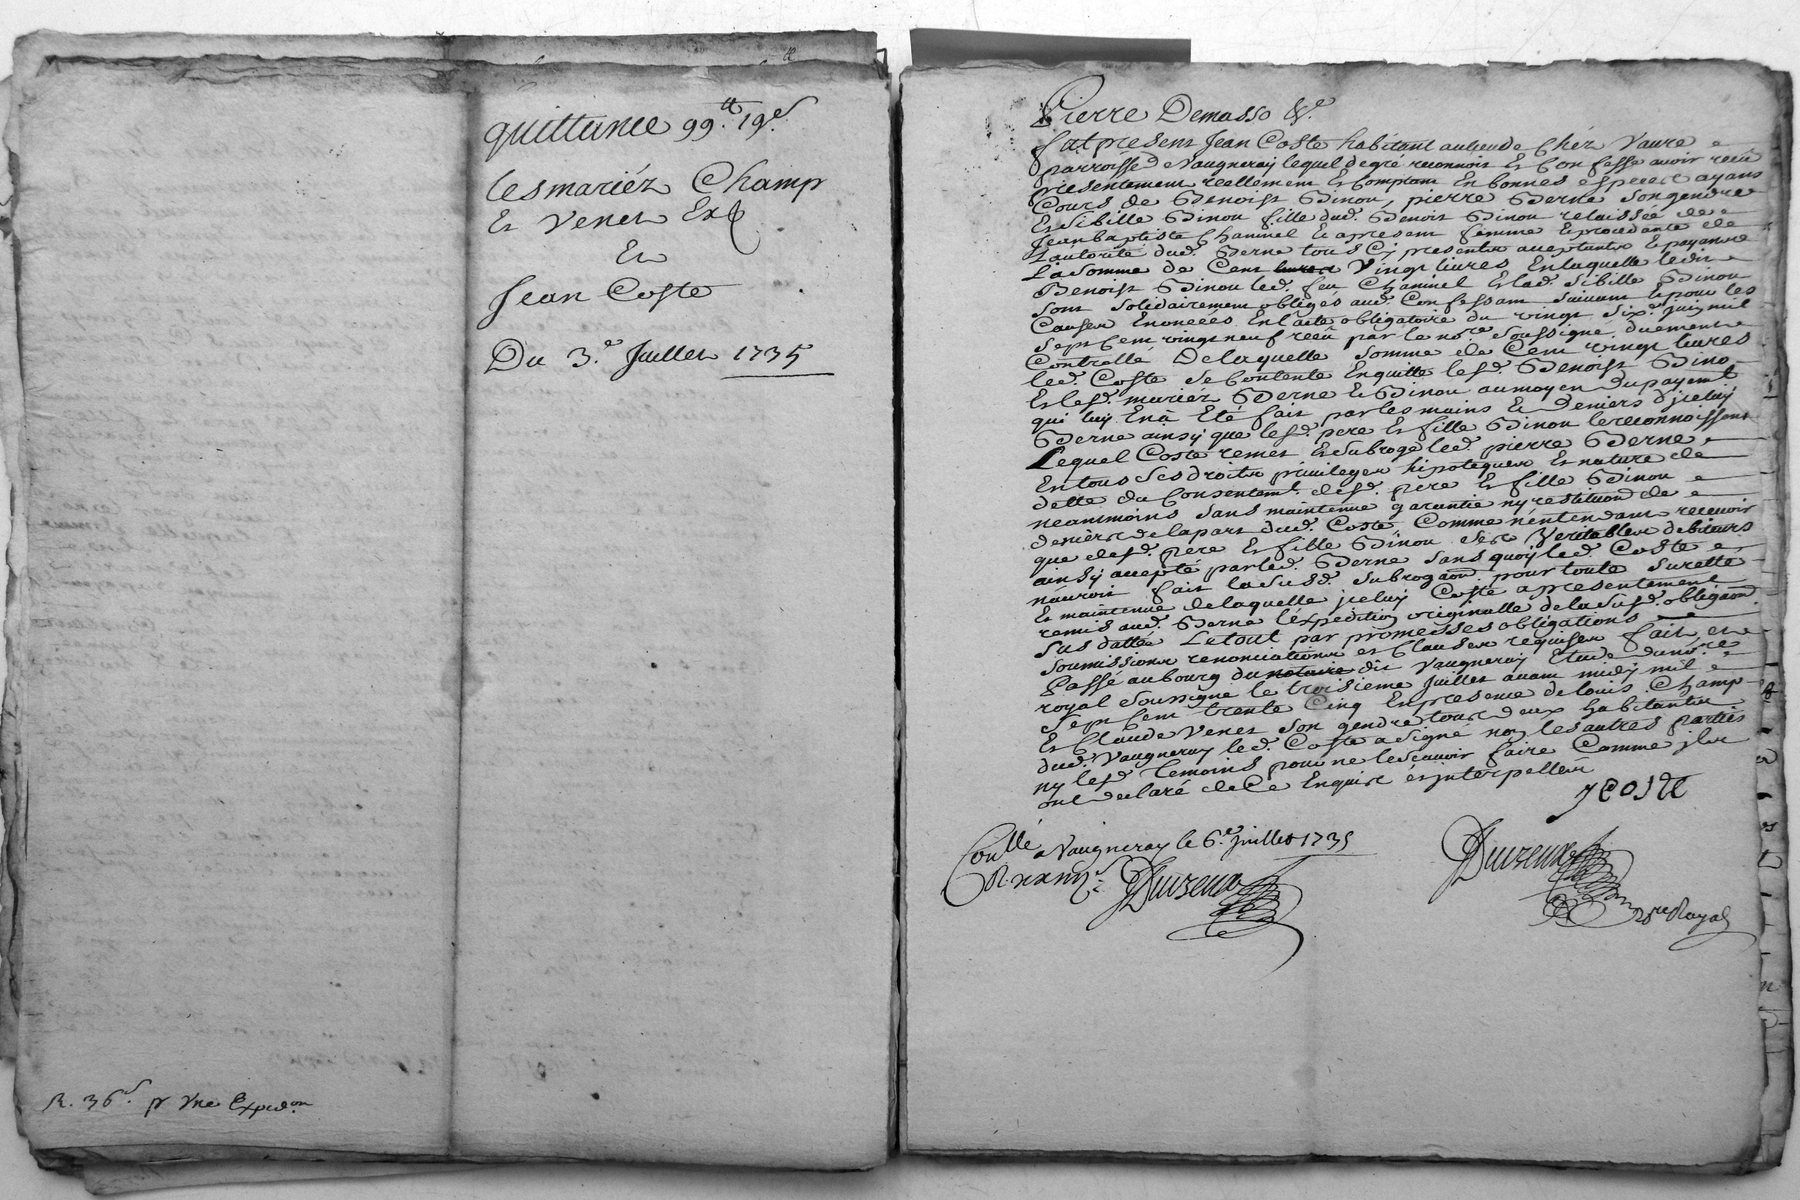 quittance 99.tt 19.s
les mariéz Champ
Et Venet Ex
Et
Jean Coste
Du 3.e Juillet 1735
R. 36s. pr Une Exped.on
Pierre Demasso &.e
fut present Jean Coste habitant au lieu de Chéz Vaure
parroisse de Vaugneray lequel de gré reconnoit Et Confesse avoir receu
presentement reellement Et Comptant En bonnes especes ayans
Cours de Benoist Binou, pierre Berne son gendre
Et Sibille Binou fille dud. Benoit Binou relaissée de
Jean baptiste Chaninel Et apresent femme Et procedante de
L'autorité dud. Berne tous Cy presents acceptants Et payants
La Somme de Cent livres Vingt livres En laquelle ledit
Benoist Binou led. feu Chaninel Et lad. Sibille Binou
sont solidairement obligés aud. Confessant suivant Et pour les
Causes Enoncéés En l'acte obligatoire du vingt six.e juin mil
sept Cent vingt neuf receu par le no.re soussigné duement
Controllé De laquelle somme de Cent vingt livres
led. Coste se Contente En quitte lesd. Benoist Bino
Et lesd. mariéz Berne Et Binou au moyen du payement
qui luy En à Eté fait par les mains Et Deniers d'jceluy
Berne ainsy que lesd. pere Et fille Binou le reconnoissent
Lequel Coste remet Et subroge led. pierre Berne
En tous ses droits privileges hipoteques Et nature de
dette du Consentem.t desd. pere Et fille Binou
neanmoins sans maintenue garantie ny restitution de
deniers de la part dud. Coste Comme n'entendant recevoir
que desd. pere Et fille Binou ses Veritables debiteurs
ainsy accepté par led. Berne sans quoy led. Coste
n'auroit fait la susd. subrogaon. pour toute surette
Et maintenue de laquelle jceluy Coste a presentement
remis aud. Berne l'expedition originalle de la susd. obligaon
sus dattée Le tout par promesses obligations
soumissions renonciations et Clauses requises fait et
Passé au bourg du notaire dit Vaugneray Etude du no.re
royal soussigné le troisieme Juillet avant midy mil
sept Cent trente Cinq En presence de louis Champ
Et Claude Venet son gendre tous deux habitants
dud. Vaugneray led. Coste a signé non les autres parties
ny lesd. temoins pour ne le scavoir faire Comme jls
ont declaré de Ce Enquist et jnterpellés
J COSTE
Con.llé a Vaugneray le 6.e juillet 1735